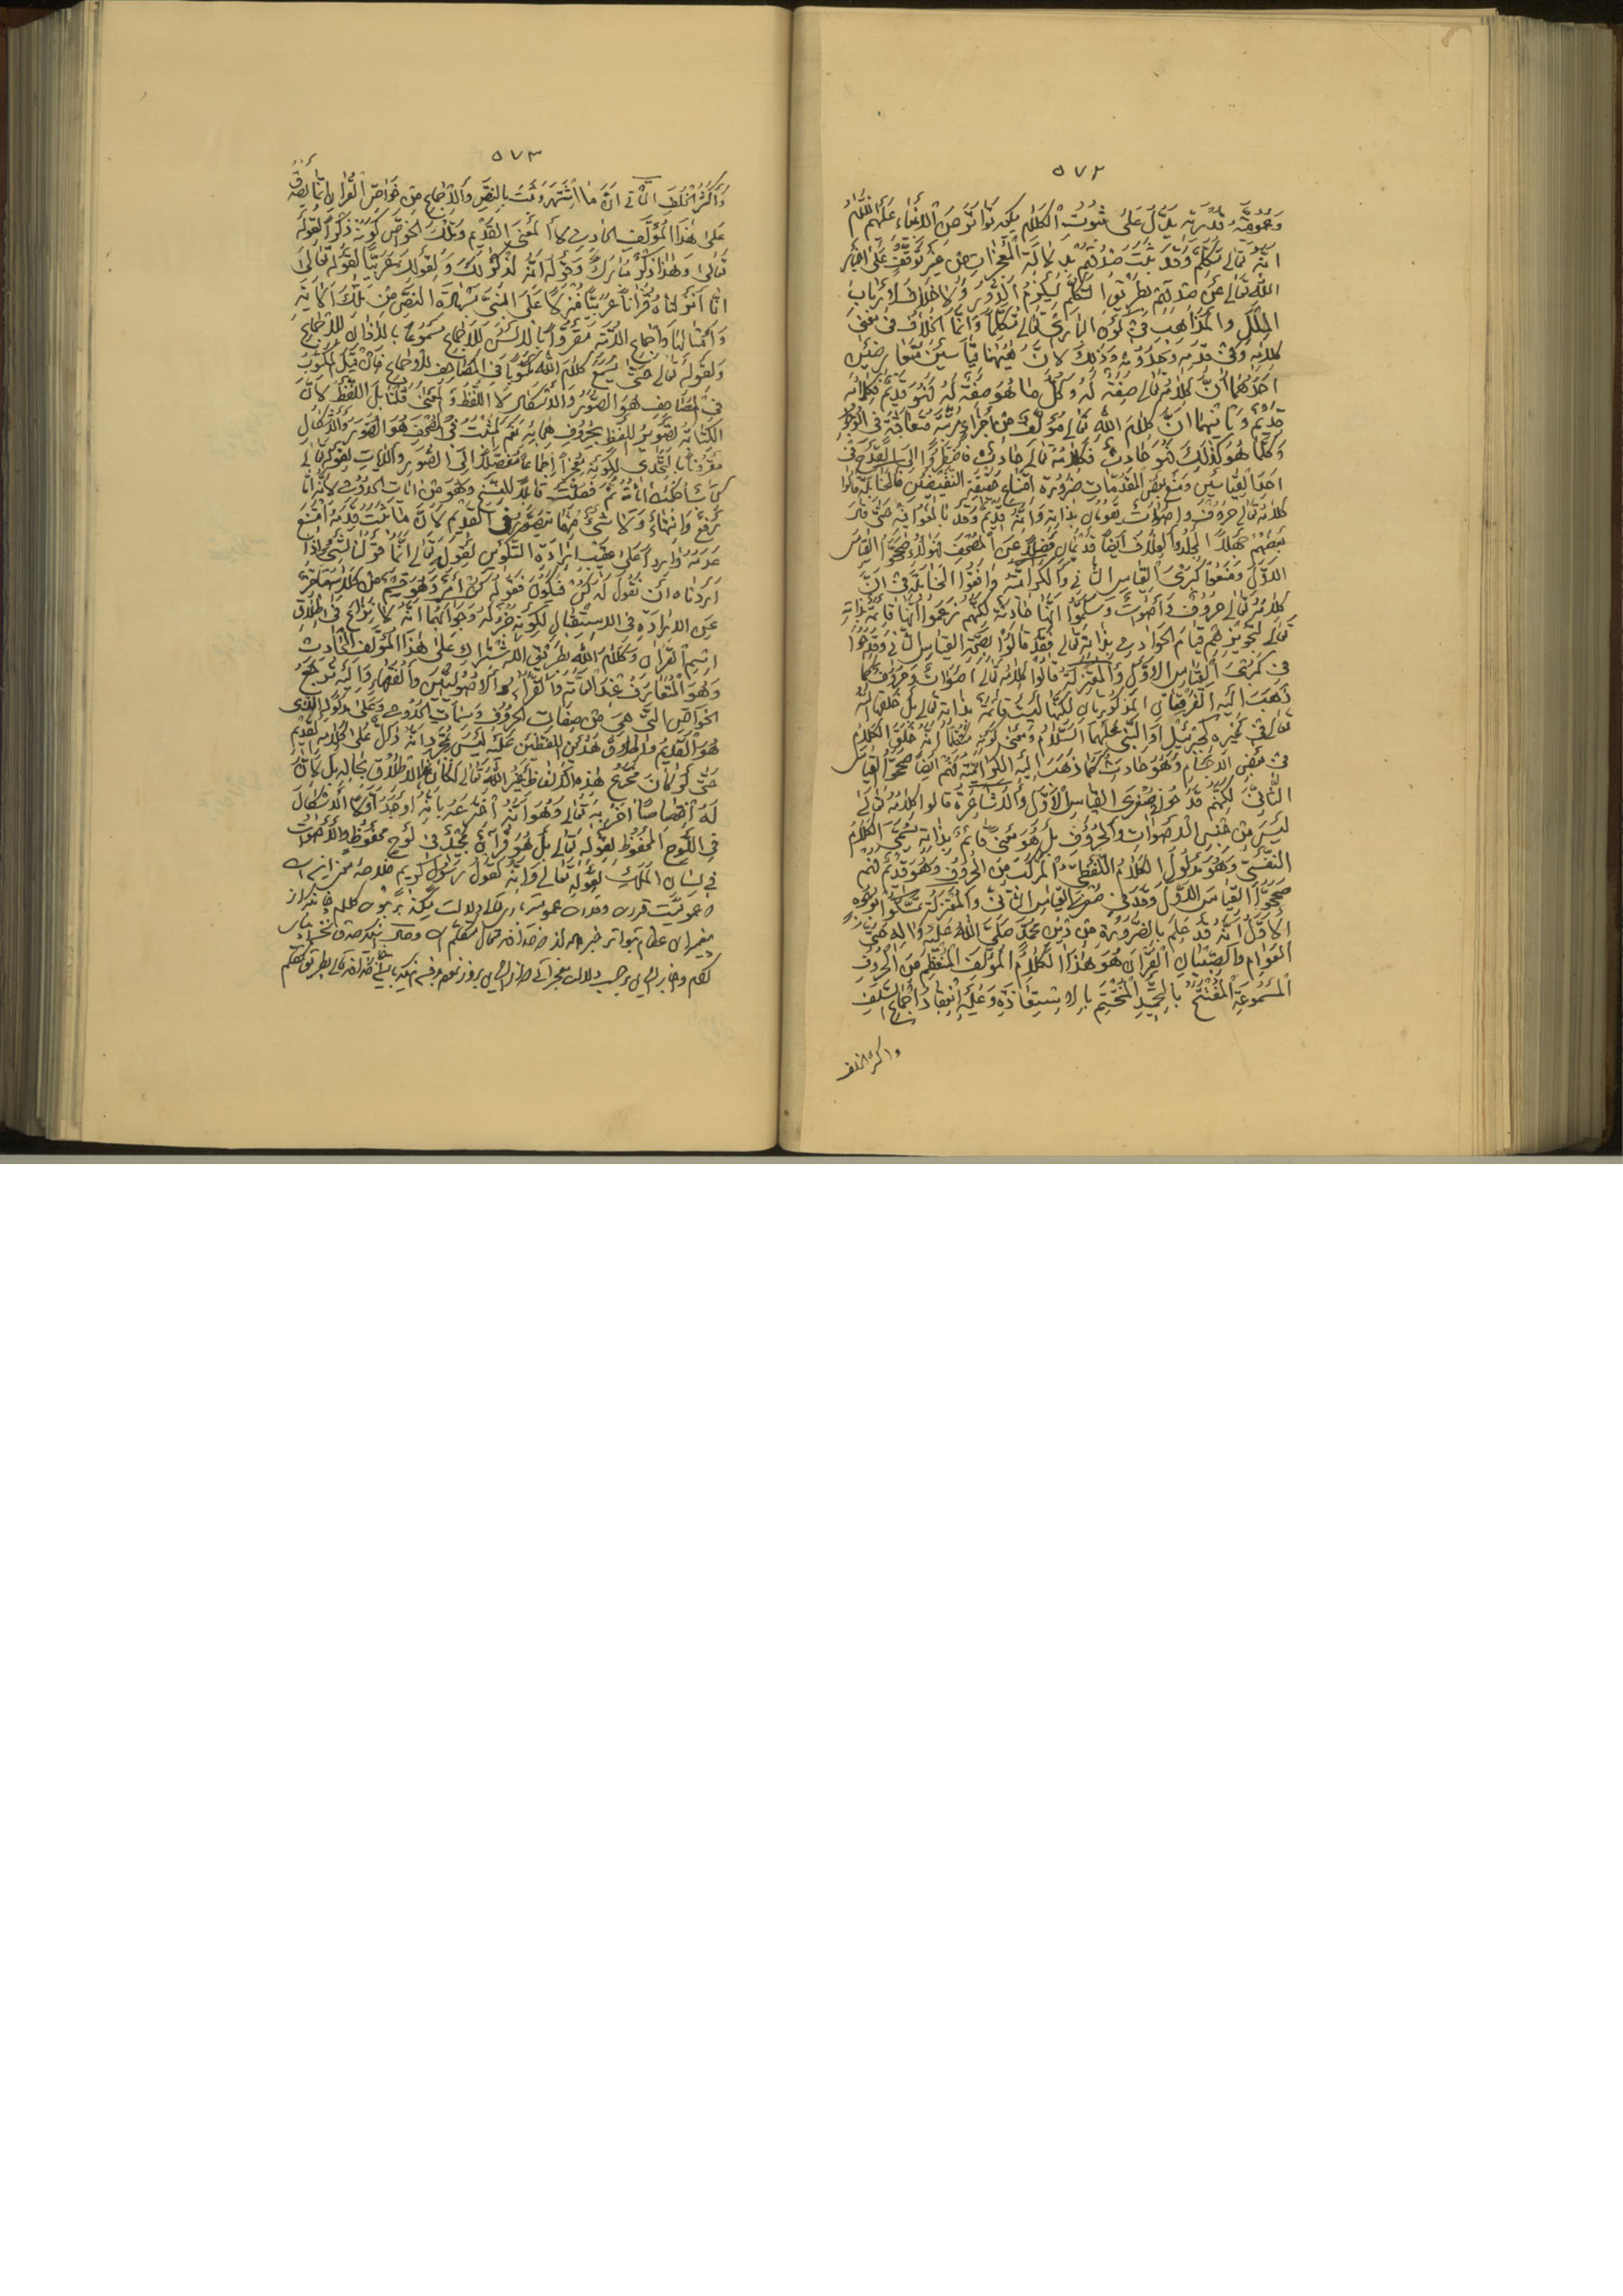 ٥٧٢
وعمومية قدرته يدل على ثبوت الكلام يكه تواتر عن الانبياء عليهم السلام
انه تعالى متكلم وقد ثبت صدقهم بدلالة المعجزات من غير توقف على اخبار
الله تعالى عن صدقهم بطريق التكلم ليلزم الدور ولا خلاف لارباب
الملل والمذاهب في كون الباري تعالى متكلما وانما الخلاف في معنى
كلامه وفي قدمه وحدوثه وذلك لان ههنا قياسين متعارضين
احدهما ان كلامه تعالى صفة له وكل ما هو صفة له فهو قديم فكلامه
قديم وثانيهما ان كلام الله تعالى مؤلف من اجزاء مترتبة متعاقبة في الوجود
وكلما هو كذلك فهو حادث فكلامه تعالى حادث فاضطروا الى القدح في
احد القياسين ومنع بعض المقدمات ضرورة امتناع حقية النقيضين فالحنابلة قالوا
كلامه تعالى حروف واصوات يقومان بذاته وانه قديم وقد بالغوا فيه حتى قال
بعضهم جهلا الجلد والغلاف ايضا قديمان فضلا عن المصحف فهؤلاء صححوا القياس
الاول ومنعوا كبرى القياس الثاني والكرامية وافقوا الحنابلة في ان
كلامه تعالى حروف واصوات وسلموا انها حادثة لكنهم زعموا انها قائمة بذاته
تعالى لتجويزهم قيام الحوادث بذاته تعالى فقد قالوا بصحة القياس الثاني وقدحوا
في كبرى القياس الاول والمعتزلة قالوا كلامه تعالى اصوات وحروف كما
ذهب اليه الفريقان المذكوريان لكنها ليست قائمة بذاته تعالى بل خلقها الله
تعالى في غيره كجبرئيل او النبي عليهما السلام ومعنى كونه متكلما انه خلق الكلام
في بعض الاجسام وهو حادث كما ذهب اليه الكرامية فهم ايضا صححوا القياس
الثاني لكنهم قدحوا في صغرى القياس الاول والاشاعرة قالوا كلامه تعالى
ليس من جنس الاصوات والحروف بل هو معنى قائم بذاته يسمى الكلام
النفسي وهو مدلول الكلام اللفظي المركب من الحروف وهو قديم فهم
صححوا القياس الاول وقدحوا في صغرى القياس الثاني والمعتزلة تمسكوا بوجوه
الاول انه قد علم بالضرورة من دين محمد صلى الله عليه واله حتى
العوام والصبيان القران هو هذا الكلام المؤلف المنتظم من الحروف
المسموعة المفتتح بالتحميد المختتم بالاستعاذة وعليه انعقاد اجماع السلف
واكثر الخلف
٥٧٣
واكثر الخلف الثاني ان ما اشتهر وثبت بالنص والاجماع من خواص القران انما يصدق
على هذا المؤلف الحادث لا المعنى القديم وتلك الخواص كونه ذكرا لقوله
تعالى وهذا ذكر مبارك وقوله انه لذكر لك ولقومك عربيا لقوله تعالى
انا انزلناه قرانا عربيا منزلا على النبي بشهادة النص من تلك الاية
وامثالها واجماع الامة مقروا بالالسن للاجماع مسموعا بالاذان للاجماع
ولقوله تعالى حتى يسمع كلام الله مكتوبا في المصاحف للاجماع فان قيل المكتوب
في المصاحف هو الصور والاشكال لا اللفظ والمعنى قلنا بل اللفظ لان
الكتابة تصوير للفظ بحروف هجائه نعم المثبت في المصحف هو الصور والاشكال
مقرونا بالتحدي لكونه معجزا اجماعا مفصلا الى السور والايات لقوله تعالى
كتاب احكمت اياته ثم فصلت قابلا للنسخ وهو من ايات الحدوث لانه اما
رفع وانتهاء ولا شئ منهما يتصور في القديم لان ما ثبت قدمه امتنع
عدمه واردا على عقب ارادة التكوين لقوله تعالى انما قولنا لشئ اذا
اردناه ان نقول له كن فيكون فقوله كن امر وهو قسم من كلامه متاخر
عن الارادة في الاستقبال لكونه جزاء له وجوابهما انه لا نزاع في اطلاق
اسم القران وكلام الله بطريق الاشتراك على هذا المؤلف الحادث
وهو المتعارف عند العامة والقراء والاصوليين والفقهاء واليه ترجع
الخواص التي هي من صفات الحروف وسمات الحدوث وعلى مدلوله الذي
هو القديم واطلاق هذين اللفظين عليه ليس بمجرد انه دال على كلامه القديم
حتى لو كان مخترع هذه الالفاظ غير الله تعالى لكان هذا الاطلاق بحاله بل لان
له اختصاصا اخر به تعالى وهو انه اخترعه بانه اوجد اولا الاشكال
في اللوح المحفوظ لقوله تعالى بل هو قران مجيد في لوح محفوظ والاصوات
في لسان الملك لقوله تعالى وانه لقول رسول كريم خلاصه